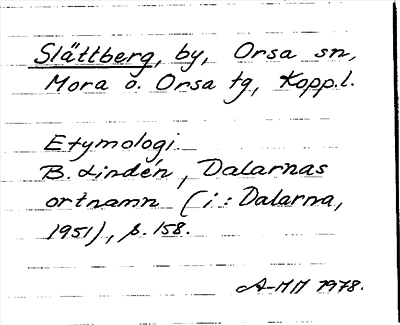 Slättberg, by, Orsa sn,
Mora o. Orsa tg, Kopp.l.
Etymologi.
B. Lindén, Dalarnas
ortnamn (i: Dalarna,
1951), s. 158.
A-MM 1978.